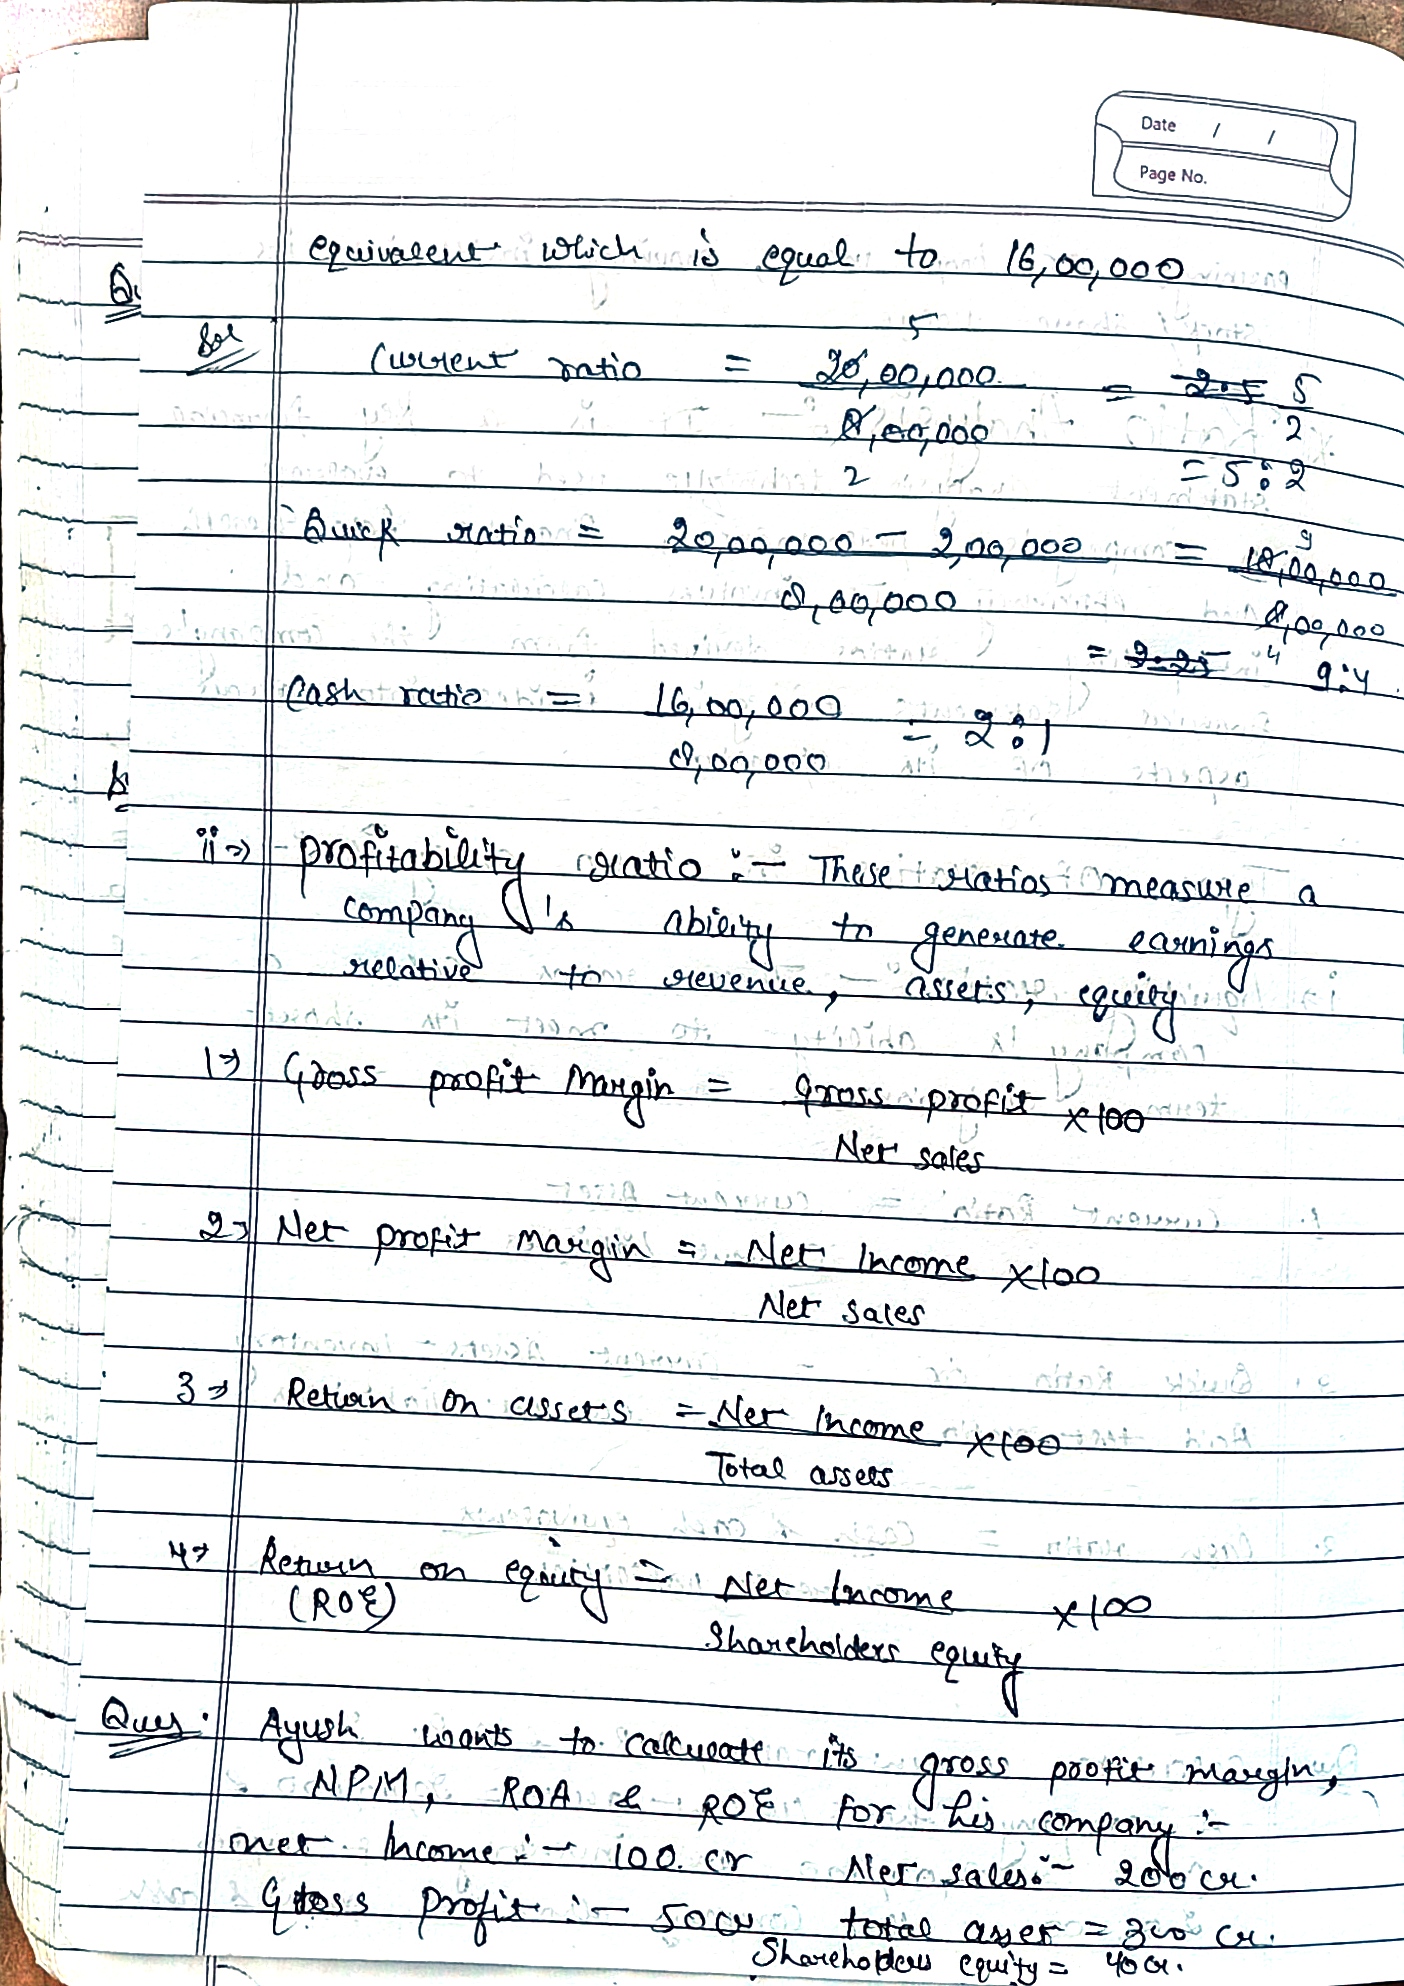 Date / /
Page No.
equivalent which is equal to 16,00,000
Q.
Sol Current ratio = 20,00,000 / 8,00,000 = 2.5 5/2
5
2
= 5:2
Quick ratio = 20,00,000 - 2,00,000 / 8,00,000 = 18,00,000 / 8,00,000
9
4
= 2.25 9:4
Cash ratio = 16,00,000 / 8,00,000 = 2:1
ii→ profitability ratio :- These ratios measure a
company's ability to generate earnings
relative to revenue, assets, equity
1→ Gross profit Margin = gross profit / Net sales ×100
2→ Net profit margin = Net Income / Net sales ×100
3→ Return on assets = Net Income / Total assets ×100
4→ Return on equity = Net Income / Shareholders equity ×100
(ROE)
Ques. Ayush wants to calculate its gross profit margin,
NPM, ROA & ROE for his company :-
net Income :- 100 cr Net sales :- 200 cr.
Gross profit :- 50 cr total asset = 300 cr.
Shareholders equity = 40 cr.